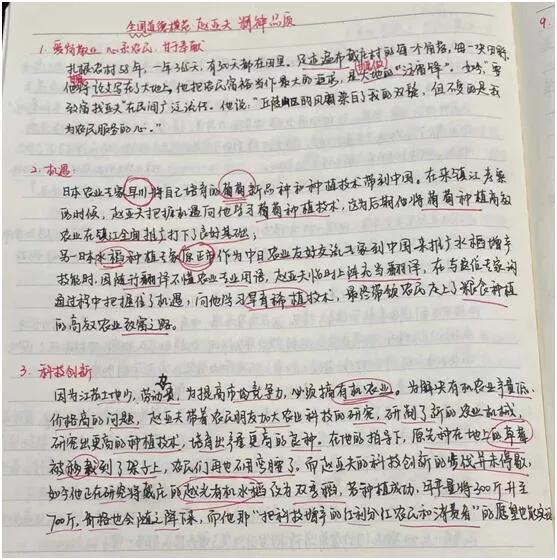 全国道德模范 赵亚夫 精神品质
1. 爱岗敬业 心系农民,甘于奉献
扎根农村58年,一年365天,有300天都在田里。足迹遍布戴庄村的每个角落,每一块田野,
他将论文写在了大地上,他把农民富裕当作最大的追求,是大地的“活雷锋”。“要
致富找亚夫”在民间广泛流传。他说:“丘陵山区的风霜染白了我的双鬓,但不变的是我
为农民服务的心。”
2. 机遇:
日本农业专家早川将自己培育的葡萄新品种和种植技术带到中国。在来镇江考察
的时候,赵亚夫把握机遇向他学习葡萄种植技术,这为后期他将葡萄种植高效
农业在镇江全面推广打下了良好基础;
另一日本水稻种植专家原正市作为中日农业友好交流专家到中国来推广水稻增产
技能时,因随行翻译不懂农业专业用语,赵亚夫临时上阵充当翻译,在与原位专家沟
通过程中把握住了机遇,向他学习旱育稀植技术,最终带领农民走上了粮食种植
的高效农业致富之路。
3. 科技创新
因为江苏土地少,劳动力贵,为提高市场竞争力,必须搞有机农业。为解决有机农业产量低、
价格高的问题,赵亚夫带着农民朋友加大农业科技的研究,研制了新的农业机械,
研究出更高的种植技术,培育出产量更高的良种。在他的指导下,原先种在地上的草莓
被移栽到了架子上,农民们再也不用弯腰了。而赵亚夫的科技创新的步伐并未停歇,
如今他正在研究将戴庄的越光有机水稻改为双季稻,若种植成功,年产量将300斤升至
700斤,价格也会随之降下来,而他那“把科技增产的红利分红农民和消费者”的愿望也能实现
9.